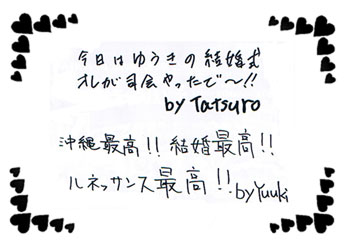 今日はゆうきの結婚式
オレが司会やったで〜!!
by Tatsuro
沖縄最高!! 結婚最高!!
ルネッサンス最高!! by Yuuki